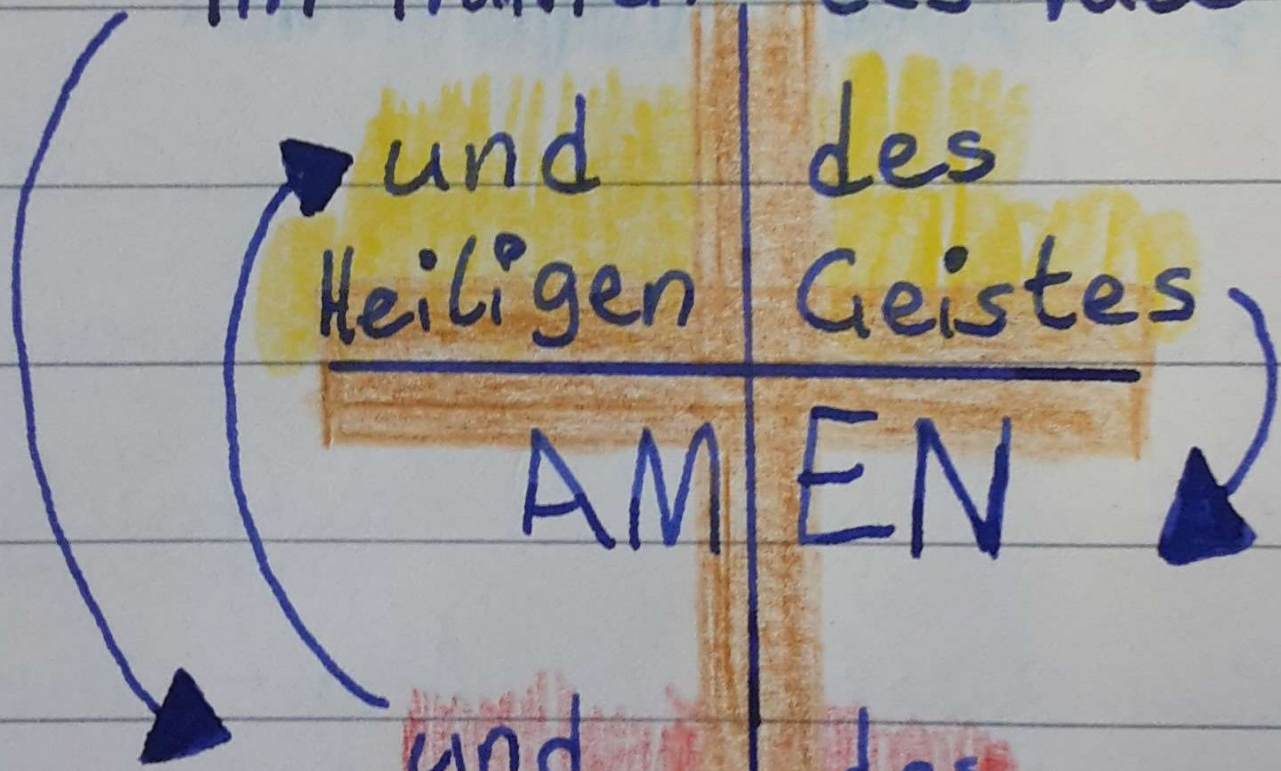 und des
Heiligen Geistes
AMEN
und des